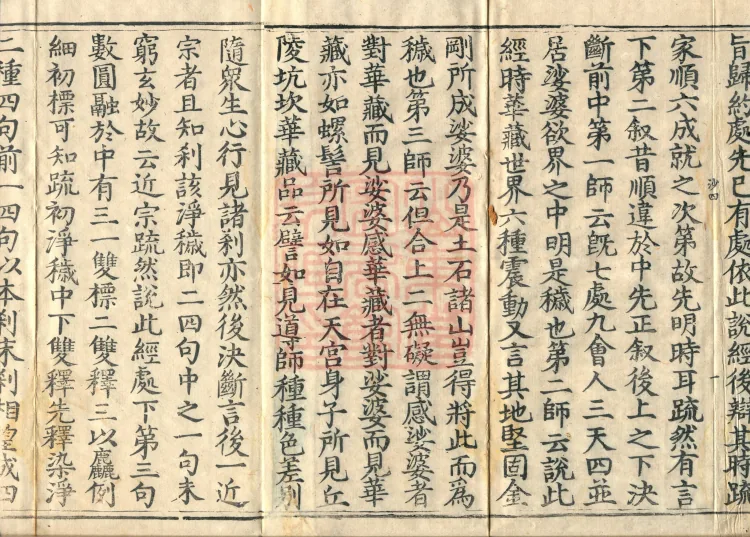 旨歸經處先已有處依此說經後辯其時疏
家順六成就之次第故先明時耳疏然有言
下第二叙昔順違於中先正叙後上之下決
斷前中第一師云旣七處九會人三天四並
居娑婆欲界之中明是穢也第二師云說此
經時華藏世界六種震動又言其地堅固金
剛所成娑婆乃是土石諸山豈得將此而爲
穢也第三師云但合上二無礙謂感娑婆者
對華藏而見娑婆感華藏者對娑婆而見華
藏亦如螺髻所見如自在天宮身子所見丘
陵坑坎華藏品云譬如見導師種種色差別
隨衆生心行見諸刹亦然後決斷言後一近
宗者且知刹該淨穢即二四句中之一句未
窮玄妙故云近宗疏然說此經處下第三句
數圓融於中有三一雙標二雙釋三以麤例
細初標可知疏初淨穢中下雙釋先釋染淨
二種四句前一四句以本刹末刹相望成四
沙四